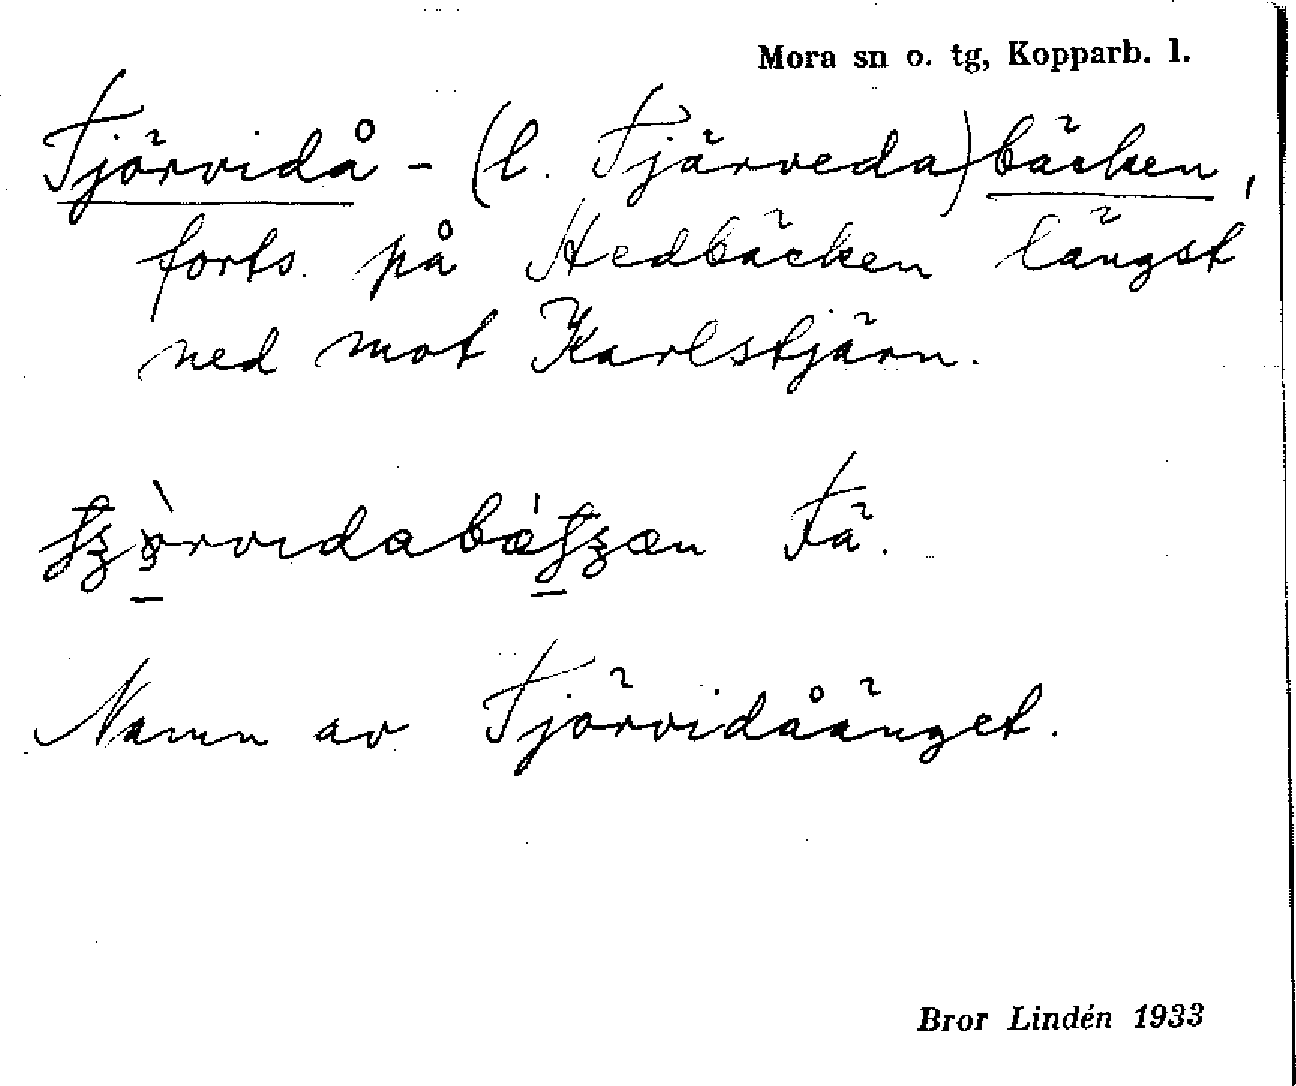 Mora sn o. tg, Kopparb. l.
Tjörvidå - (l. Tjärveda)bäcken,
forts. på Hedbäcken längst
ned mot Karlstjärn.
Fä.
Namn av Tjörvidåänget.
Bror Lindén 1933